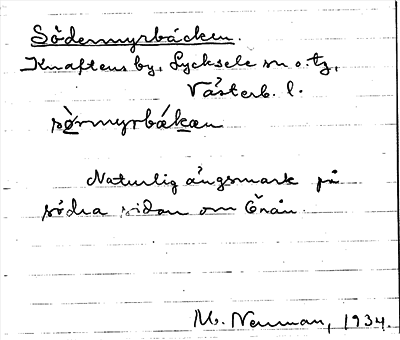 Södermyrbäcken.
Knaftens by, Lycksele sn o. tg,
Västerb. l.
sòrmyrbäkæn
Naturlig ängsmark på
södra sidan om Örån.
M. Neuman, 1934.